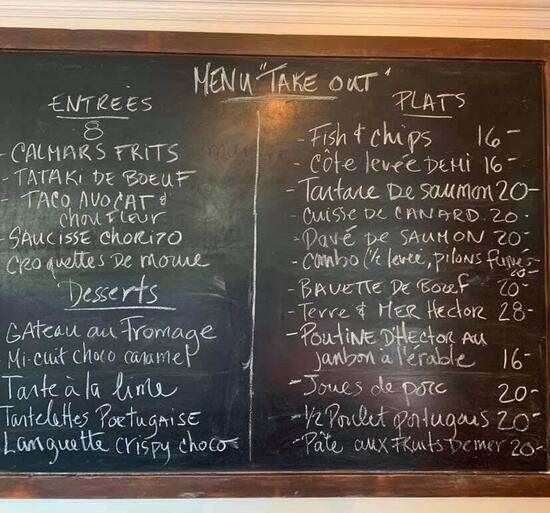 MENU "TAKE OUT"
ENTRÉES
8
- CALMARS FRITS
- TATAKI DE BOEUF
- TACO AVOCAT &
CHOUFLEUR
- SAUCISSE CHORIZO
CROQUETTES DE MORUE
Desserts
GÂTEAU AU FROMAGE
- Mi-cuit choco caramel
Tarte à la lime
Tartelettes PORTUGAISE
Languette crispy choco
PLATS
- Fish & chips 16-
- Côte levée DEMI 16-
- Tartare De saumon 20-
- CUISSE DE CANARD 20-
- PAVÉ DE SAUMON 20-
- Combo (½ levée, pilons fumés
20-
- BAVETTE DE BOEUF 20-
- Terre & MER HECTOR 28-
- POUTINE D'HECTOR AU
jambon à l'érable 16-
- Joues de porc 20-
- 1/2 Poulet portugais 20-
- Pâte AUX FRUITS DE MER 20-